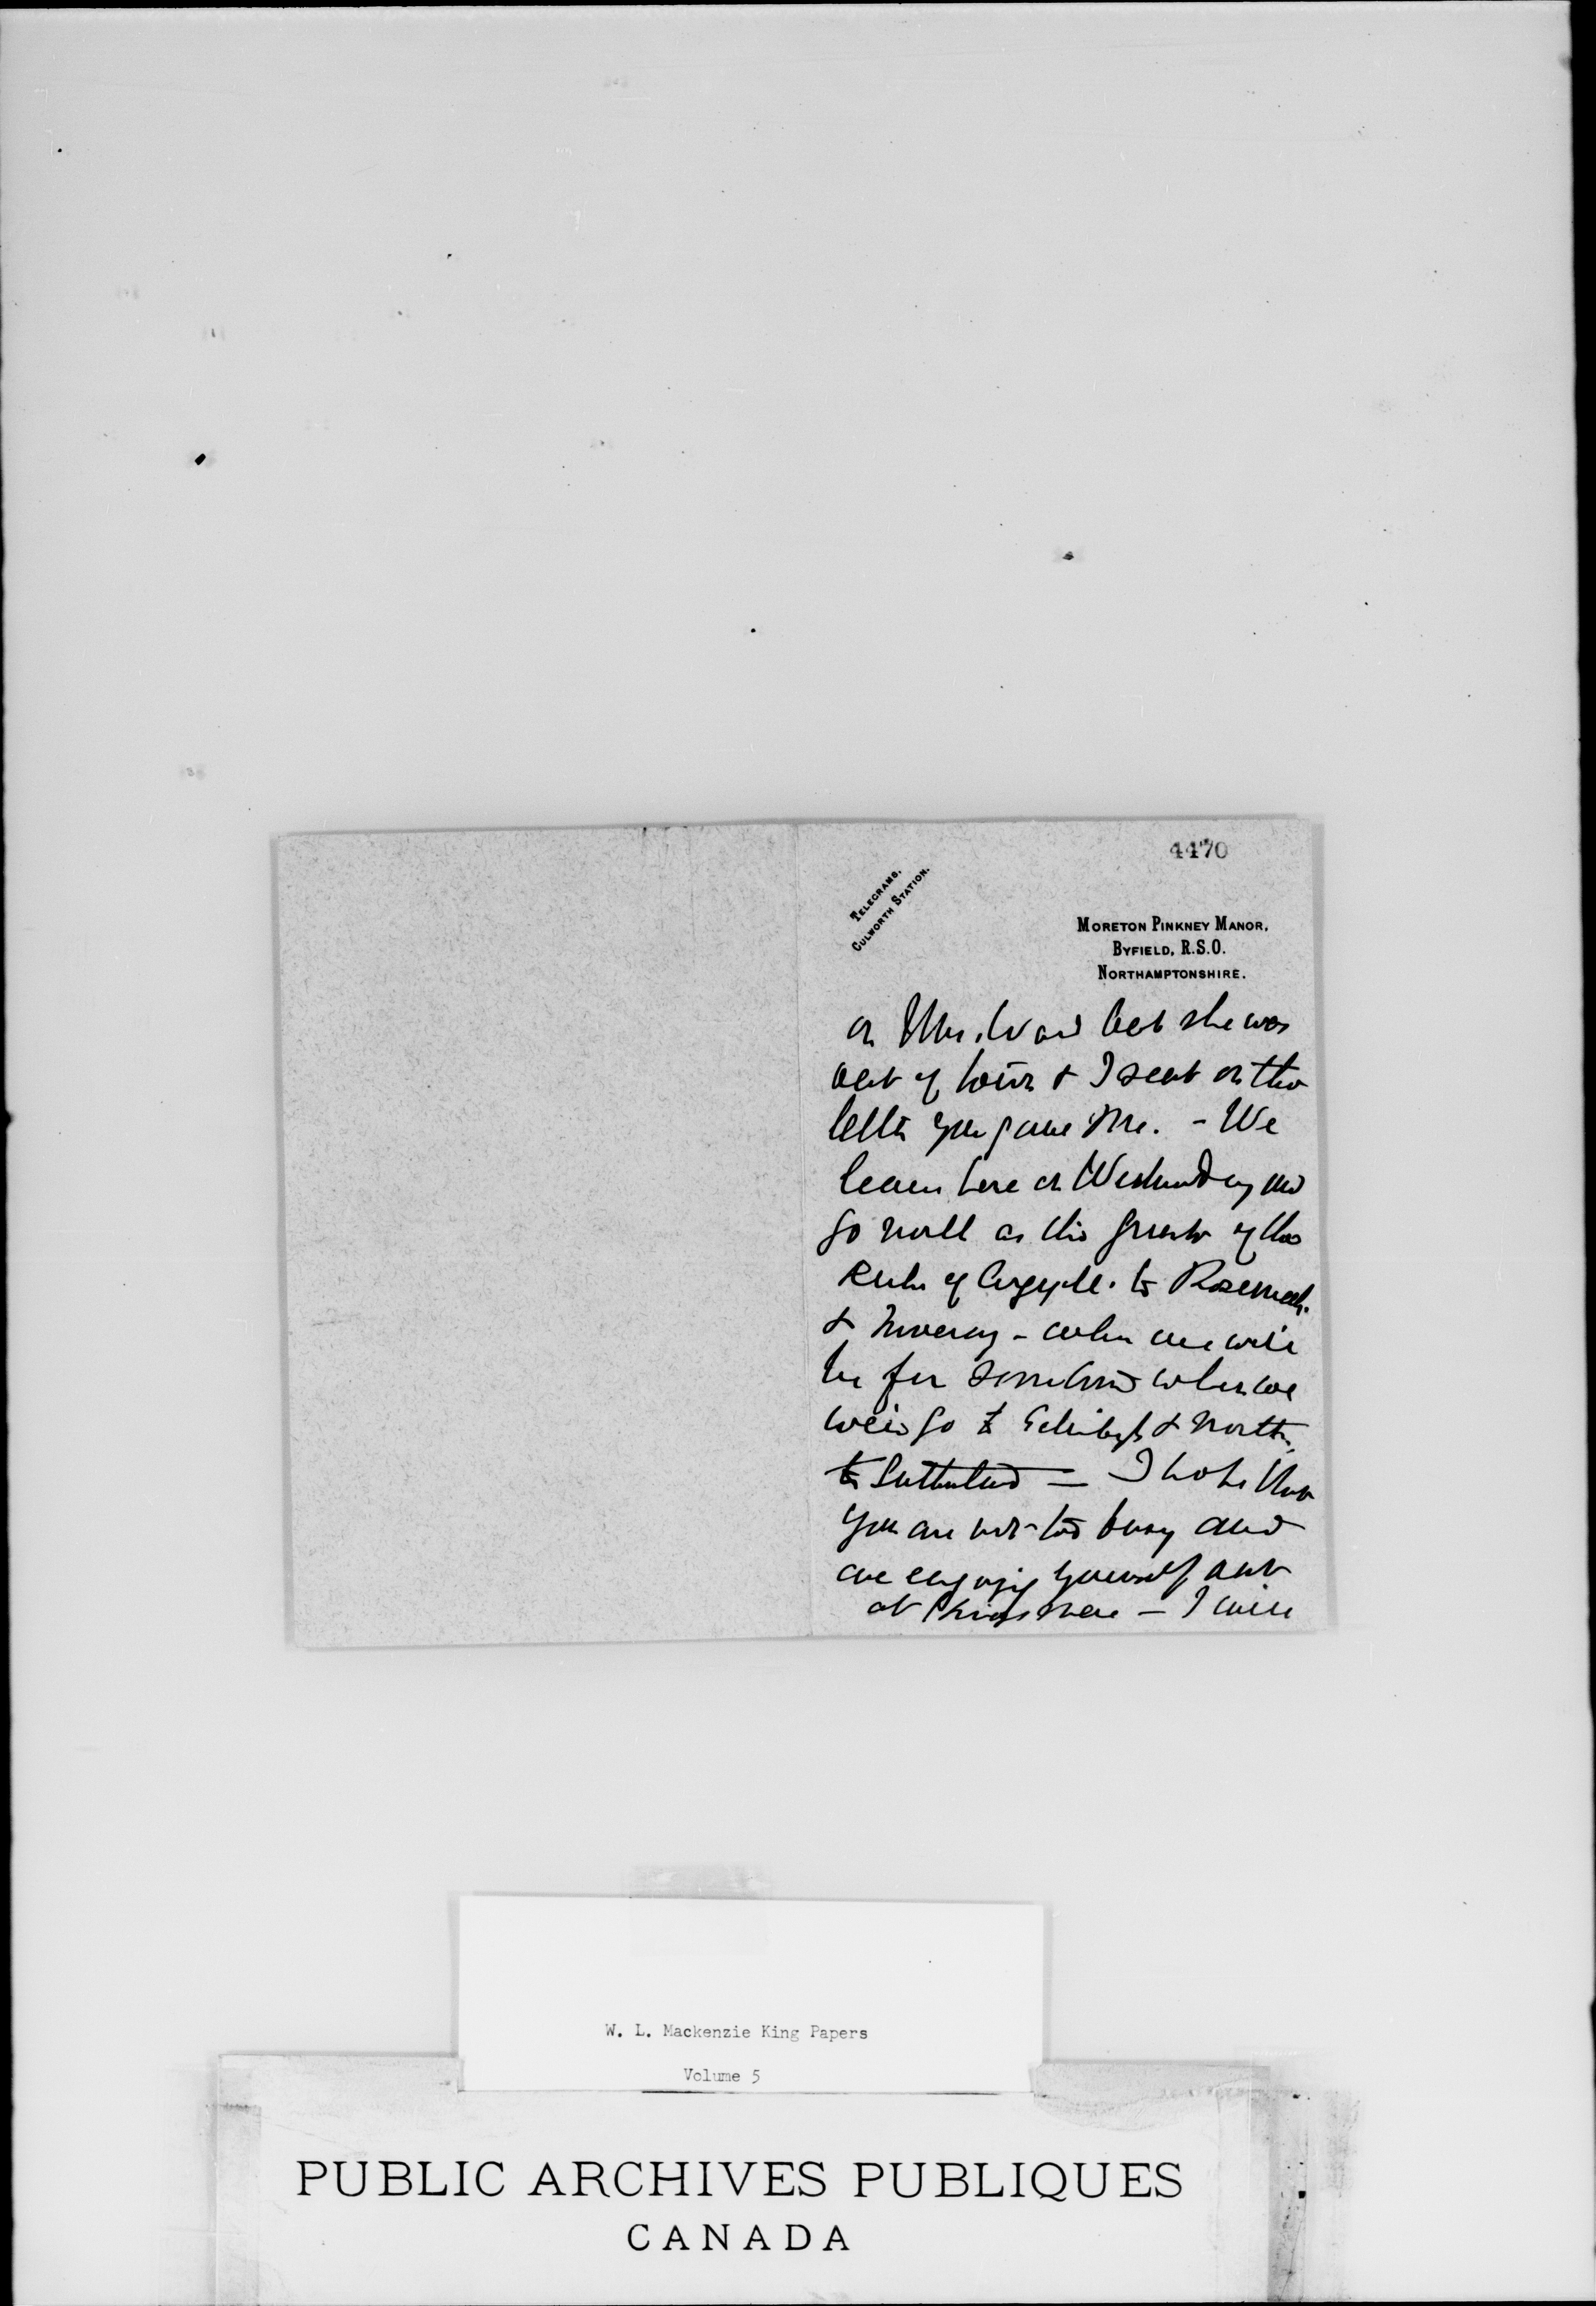 4470
TELEGRAMS.
CULWORTH STATION.
MORETON PINKNEY MANOR,
BYFIELD, R.S.O.
NORTHAMPTONSHIRE.
on Mrs. Ward but she was
out of town & I sent on the
letter you gave me. - We
leave here on Wednesday and
go north as the guests of the
Duke of Argyll. to Roseneath.
& Inveray - when we will
be for sometime when we
will go to Edinburgh & north
to Sutherland - I hope that
you are not too busy and
are enjoying yourself out
at Kingsmere - I will
W. L. Mackenzie King Papers
Volume 5
PUBLIC ARCHIVES PUBLIQUES
CANADA